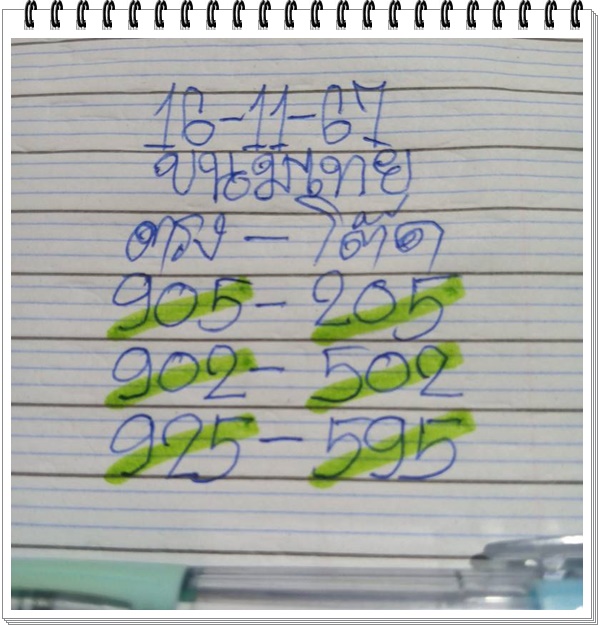 16-11-67
ขนมไทย
ตรง - โต๊ด
905- 205
902- 502
925 - 595